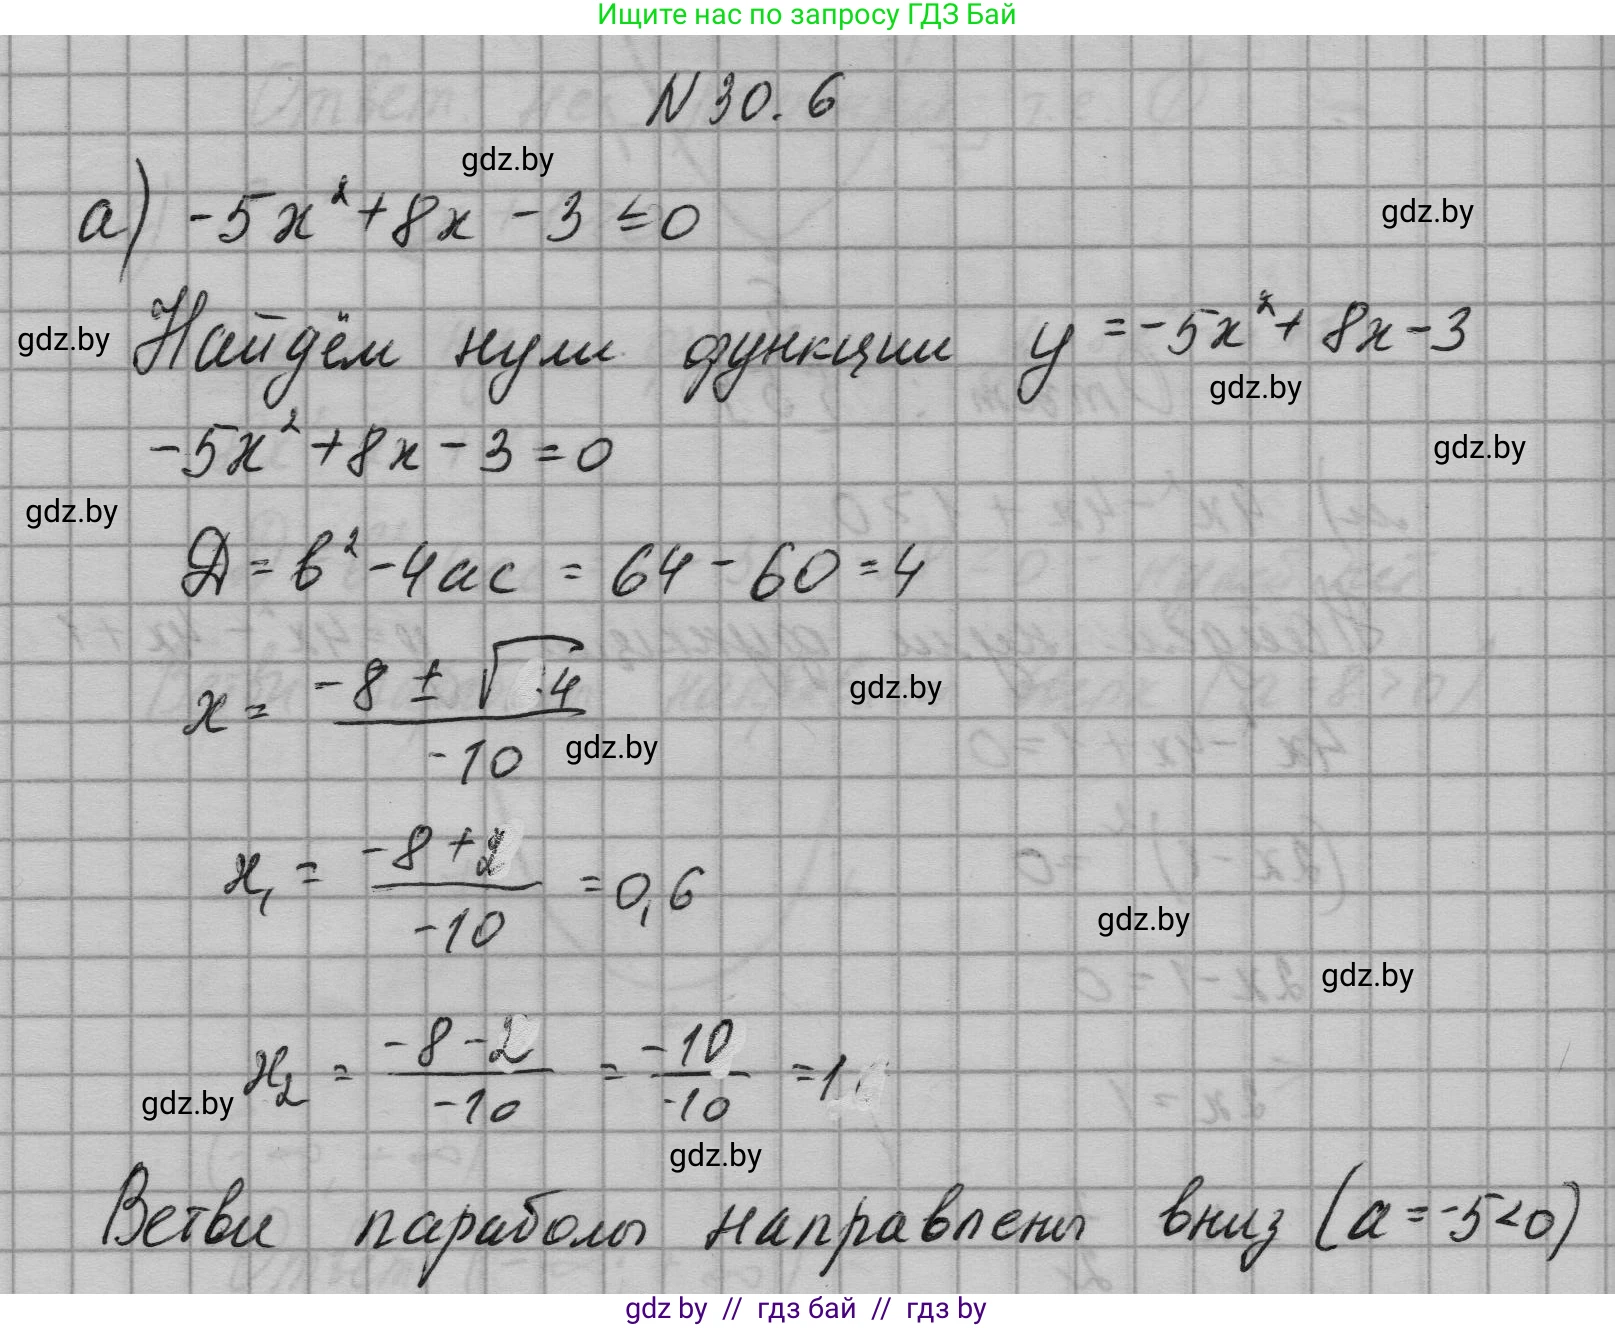 Ищите нас по запросу ГДЗ Бай
N 30. 6
gdz.by
а) -5x² + 8x - 3 ≤ 0
gdz.by
gdz.by
Найдём нули функции y = -5x² + 8x - 3
gdz.by
-5x² + 8x - 3 = 0
gdz.by
gdz.by
D = b² - 4ac = 64 - 60 = 4
x = (-8 ± √4) / -10
gdz.by
gdz.by
x₁ = (-8 + 2) / -10 = 0,6
gdz.by
gdz.by
x₂ = (-8 - 2) / -10 = -10 / -10 = 1
gdz.by
gdz.by
Ветви параболы направлены вниз (a = -5 < 0)
gdz by // гдз бай // гдз by